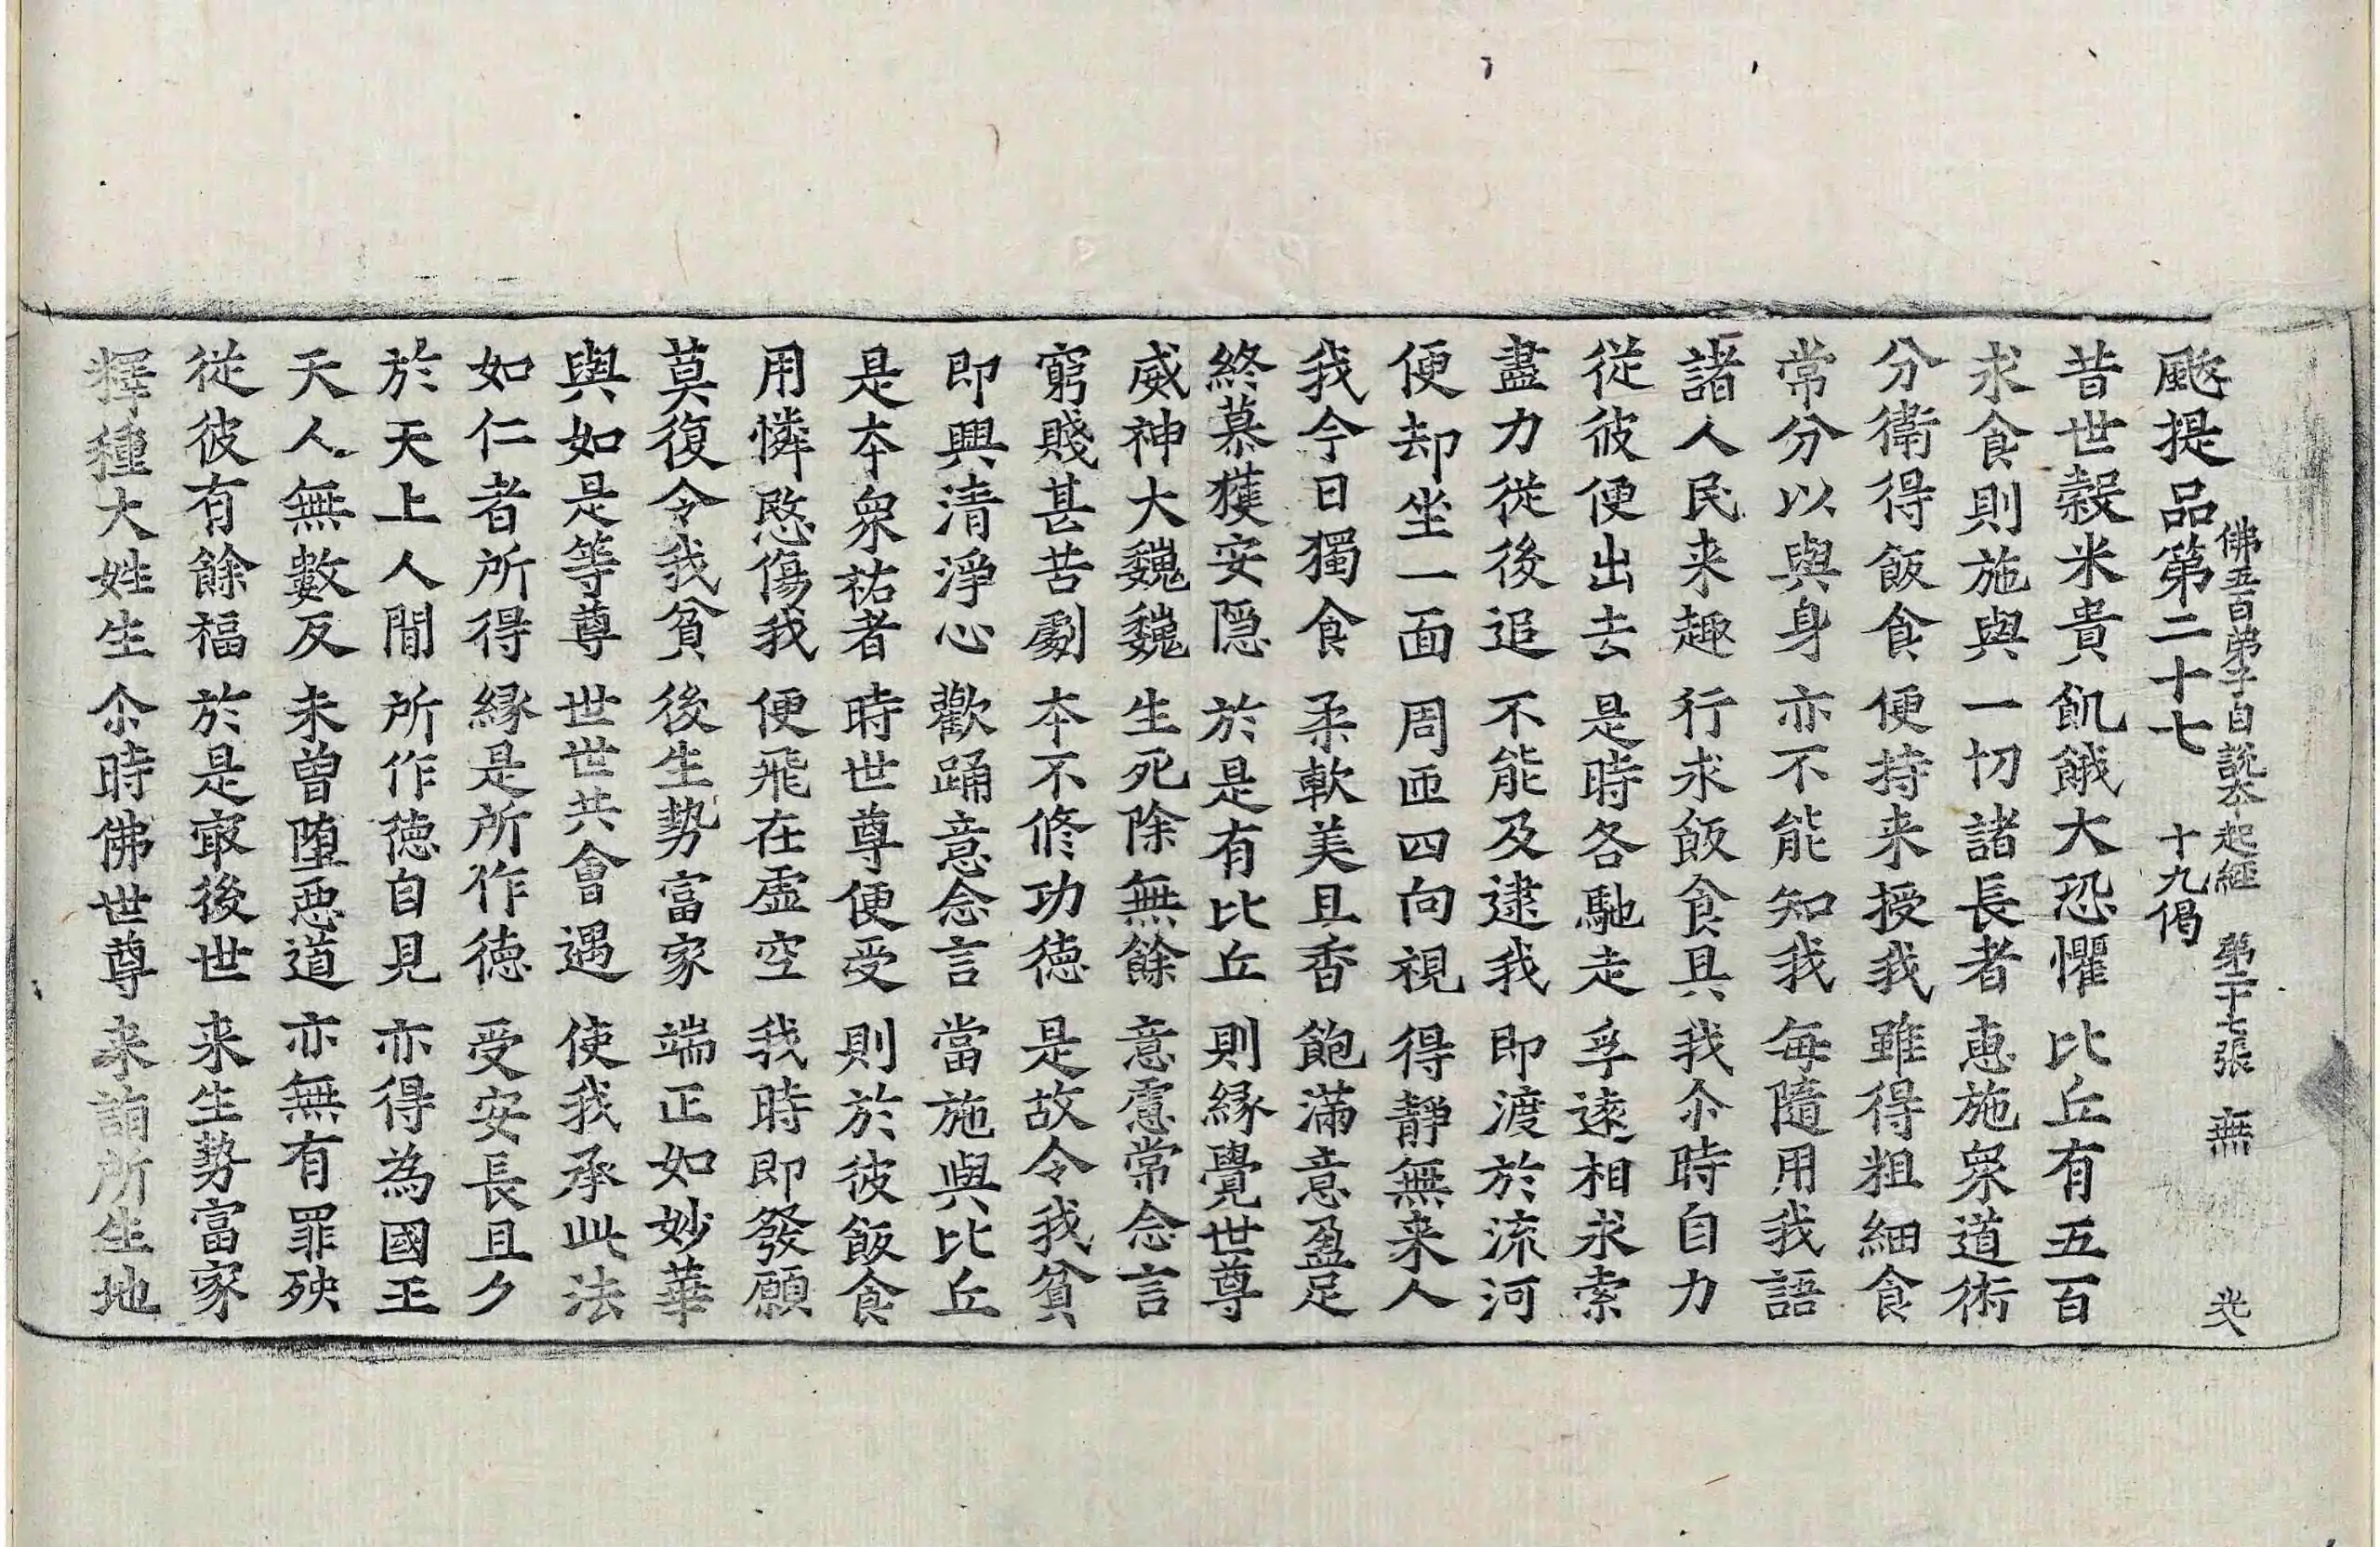 佛五百弟子自説夲起經 第二十七張 無
颰提品第二十七 十九偈
昔世穀米貴 飢餓大恐懼 比丘有五百
求食則施與 一切諸長者 惠施衆道術
分衛得飯食 便持来授我 雖得粗細食
常分以與身 亦不能知我 每隨用我語
諸人民来趣 行求飯食具 我尒時自力
從彼便出去 是時各馳走 孚遠相求索
盡力從後追 不能及逮我 即渡於流河
便却坐一面 周匝四向視 得靜無来人
我今日獨食 柔軟美且香 飽滿意盈足
終慕獲安隠 於是有比丘 則縁覺世尊
威神大巍巍 生死除無餘 意慮常念言
窮賤甚苦劇 夲不修功德 是故令我貧
即興清淨心 歡踊意念言 當施與比丘
是夲衆祐者 時世尊便受 則於彼飯食
用憐愍傷我 便飛在虛空 我時即發願
莫復令我貧 後生勢富家 端正如妙華
與如是等尊 世世共會遇 使我承此法
如仁者所得 縁是所作德 受安長且久
於天上人間 所作德自見 亦得為國王
天人無數反 未曾墮惡道 亦無有罪殃
從彼有餘福 於是㝡後世 来生勢富家
釋種大姓生 尒時佛世尊 来詣所生地